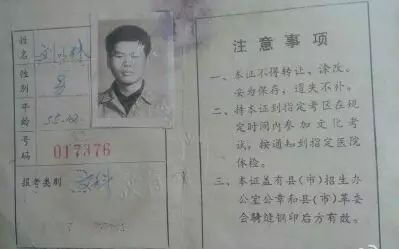 姓名
性别 男
年龄
号码 017376
报考类别
注意事项
一、本证不得转让、涂改。
妥为保存，遗失不补。
二、持本证到指定考区在规
定时间内参加文化考
试，按通知到指定医院
体检。
三、本证盖有县(市)招生办
公室公章和县(市)革委
会骑缝钢印后方有效。